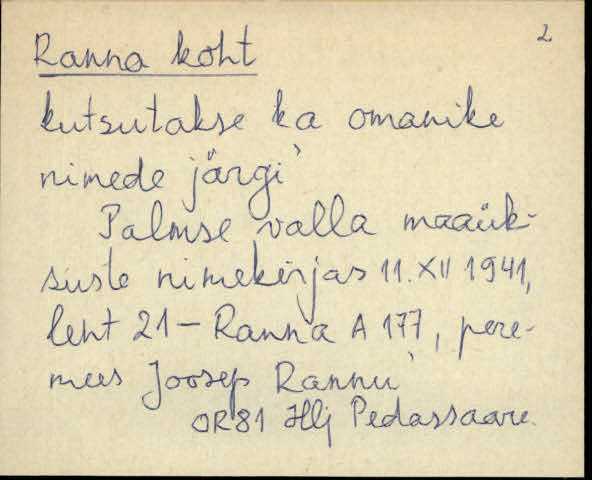 2
Ranna koht
kutsutakse ka omanike
nimede järgi
Palmse valla maaük-
suste nimekirjas 11. XII 1941,
leht 21 – Ranna A 177, pere-
mees Joosep Rannu
OR81 Hlj Pedassaare.